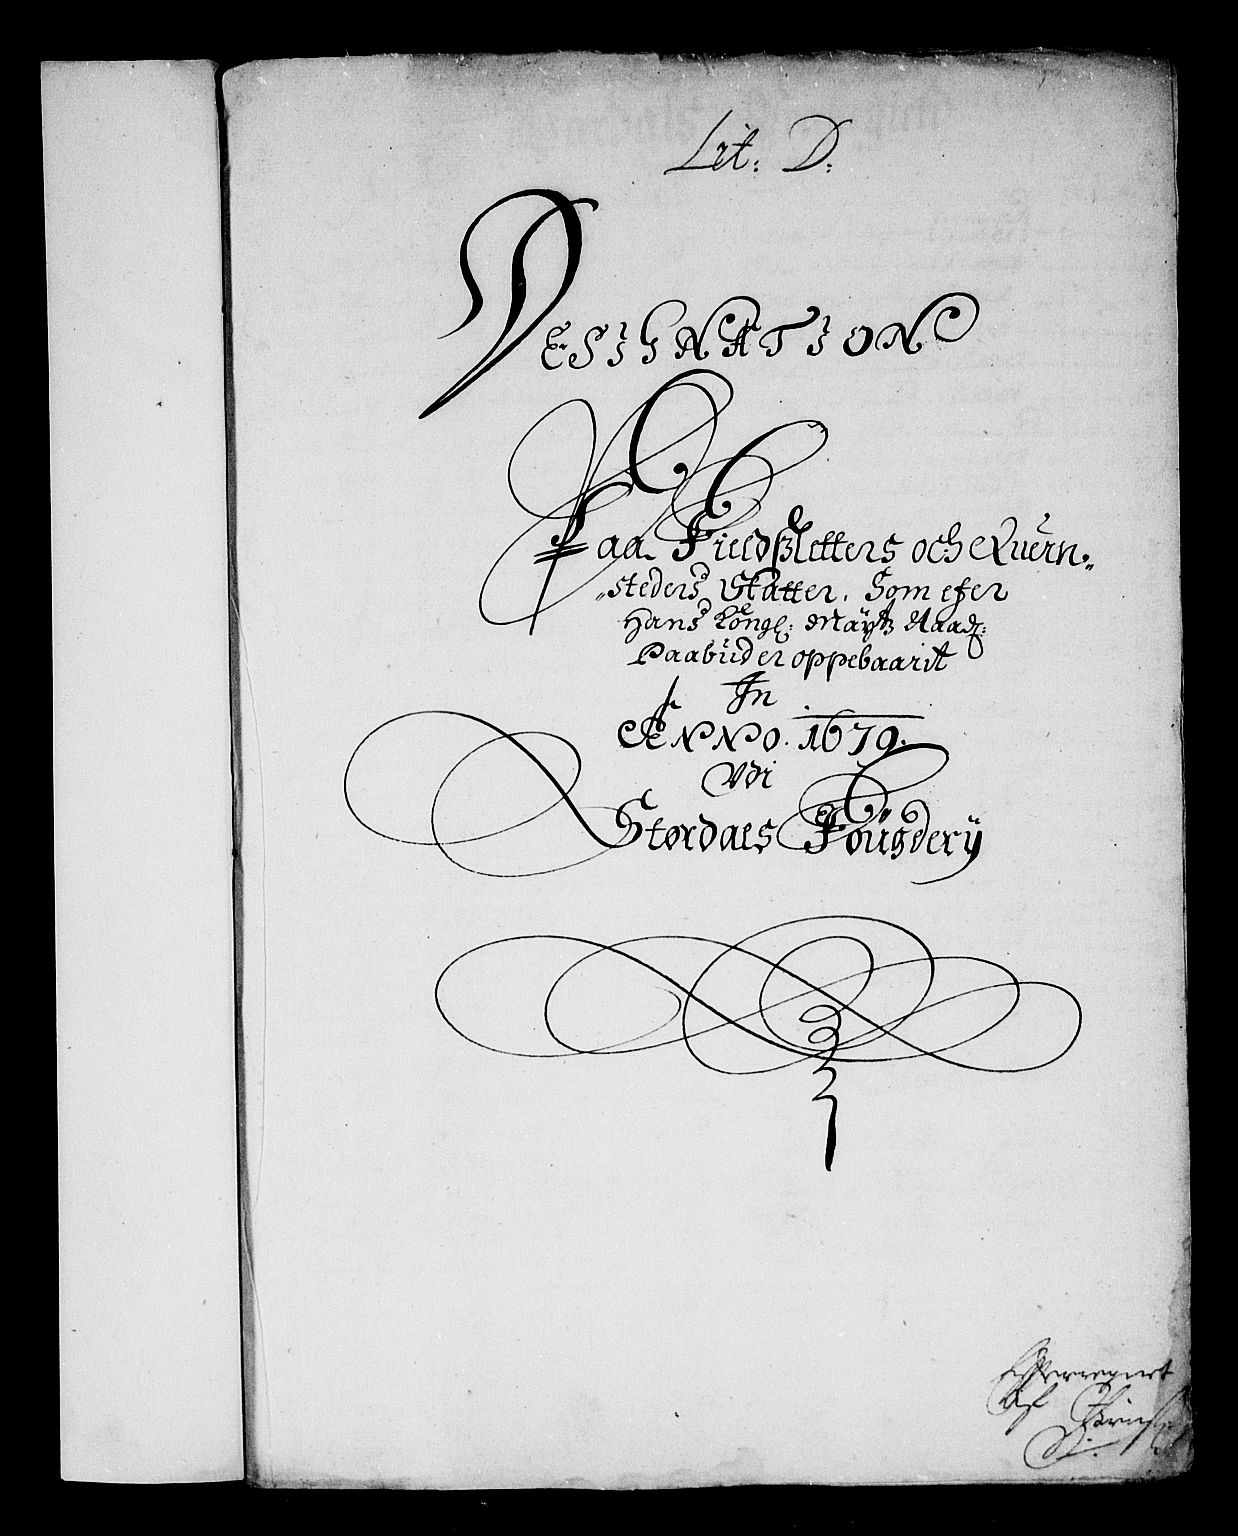 Lit: D:
DESIGNATION
Paa Fieldßletters och Quern„
„steders Skatter. Som efer
Hans Kongl: Maÿtz Naad:
Paabüder oppebaarit
In
ANNO. 1679.
Vdi
Størdaels Foügderÿ